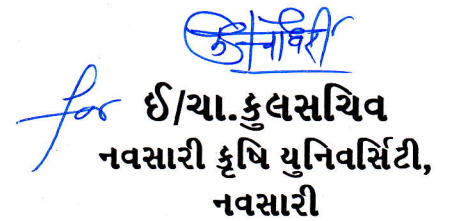 for ઈ/ચા.કુલસચિવ
નવસારી કૃષિ યુનિવર્સિટી,
નવસારી